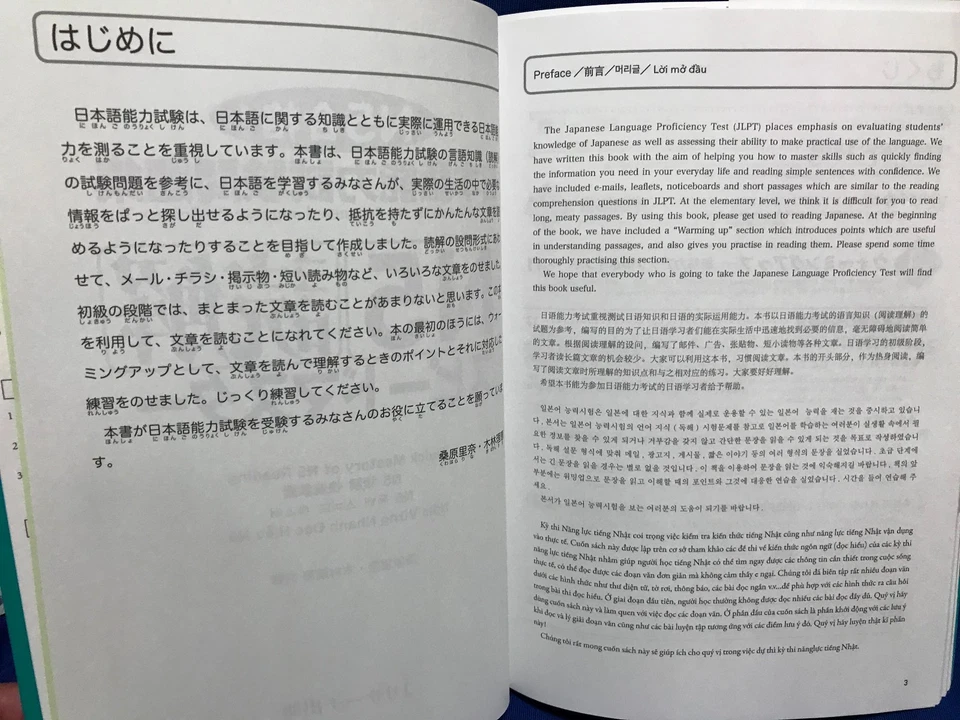 はじめに
日本語能力試験は、日本語に関する知識とともに実際に運用できる日本語
力を測ることを重視しています。本書は、日本語能力試験の言語知識（読解）
の試験問題を参考に、日本語を学習するみなさんが、実際の生活の中で必要
情報をぱっと探し出せるようになったり、抵抗を持たずにかんたんな文章を
めるようになったりすることを目指して作成しました。読解の設問形式にあ
せて、メール・チラシ・掲示物・短い読み物など、いろいろな文章をのせました
初級の段階では、まとまった文章を読むことがあまりないと思います。この
を利用して、文章を読むことになれてください。本の最初のほうには、ウォー
ミングアップとして、文章を読んで理解するときのポイントとそれに対応し
練習をのせました。じっくり練習してください。
本書が日本語能力試験を受験するみなさんのお役に立てることを願ってい
す。
桑原里奈・木林
Preface／前言／머리글／ Lời mở đầu
The Japanese Language Proficiency Test (JLPT) places emphasis on evaluating students'
knowledge of Japanese as well as assessing their ability to make practical use of the language. We
have written this book with the aim of helping you how to master skills such as quickly finding
the information you need in your everyday life and reading simple sentences with confidence. We
have included e-mails, leaflets, noticeboards and short passages which are similar to the reading
comprehension questions in JLPT. At the elementary level, we think it is difficult for you to read
long, meaty passages. By using this book, please get used to reading Japanese. At the beginning
of the book, we have included a “Warming up” section which introduces points which are useful
in understanding passages, and also gives you practise in reading them. Please spend some time
thoroughly practising this section.
We hope that everybody who is going to take the Japanese Language Proficiency Test will find
this book useful.
日语能力考试重视测试日语知识和日语的实际运用能力。本书以日语能力考试的语言知识（阅读理解）的
试题为参考，编写的目的为了让日语学习者们能在实际生活中迅速地找到必要的信息，毫无障碍地阅读简单
的文章。根据阅读理解的设问，编写了邮件。广告、张贴物、短小读物等各种文章。日语学习的初级阶段，
学习者读长篇文章的机会较少。大家可以利用这本书，习惯阅读文章。本书的开头部分，作为热身阅读，编
写了阅读文章时所理解的知识点和与之相对应的练习。大家要好好理解。
希望本书能为参加日语能力考试的日语学习者给予帮助。
일본어 능력시험은 일본에 대한 지식과 함께 실제로 운용할 수 있는 일본어 능력을 재는 것을 중시하고 있습니
다. 본서는 일본어 능력시험의 언어 지식（독해）시험문제를 참고로 일본어를 학습하는 여러분이 실생활 속에서 필
요한 정보를 찾을 수 있게 되거나 거부감을 갖지 않고 간단한 문장을 읽을 수 있게 되는 것을 목표로 작성하였습니
다. 독해 설문 형식에 맞춰 메일, 광고지, 게시물, 짧은 이야기 등의 여러 형식의 문장을 실었습니다. 초급 단계에
서는 긴 문장을 읽을 경우는 별로 없을 것입니다. 이 책을 이용하여 문장을 읽는 것에 익숙해지길 바랍니다. 책의 앞
부분에는 워밍업으로 문장을 읽고 이해할 때의 포인트와 그것에 대응한 연습을 실었습니다. 시간을 들여 연습해 주
세요.
본서가 일본어 능력시험을 보는 여러분의 도움이 되기를 바랍니다.
Kỳ thi Năng lực tiếng Nhật coi trọng việc kiểm tra kiến thức tiếng Nhật cũng như năng lực tiếng Nhật vận dụng
vào thực tế. Cuốn sách này được lập trên cơ sở tham khảo các đề thi về kiến thức ngôn ngữ (đọc hiểu) của các kỳ thi
năng lực tiếng Nhật nhằm giúp người học tiếng Nhật có thể tìm ngay được các thông tin cần thiết trong cuộc sống
thực tế, có thể đọc được các đoạn văn đơn giản mà không cảm thấy e ngại. Chúng tôi đã biên tập rất nhiều đoạn văn
dưới các hình thức như thư điện tử, tờ rơi, thông báo, các bài đọc ngắn v.v...để phù hợp với các hình thức ra câu hỏi
trong bài thi đọc hiểu. Ở giai đoạn đầu tiên, người học thường không được đọc nhiều các bài đọc đầy đủ. Quý vị hãy
dùng cuốn sách này và làm quen với việc đọc các đoạn văn. Ở phần đầu của cuốn sách là phần khởi động với các lưu ý
khi đọc và lý giải đoạn văn cùng như các bài luyện tập tương ứng với các điểm lưu ý đó. Quý vị hãy luyện thật kĩ phần
này!
Chúng tôi rất mong cuốn sách này sẽ giúp ích cho quý vị trong việc dự thi kỳ thi nănglực tiếng Nhật.
3